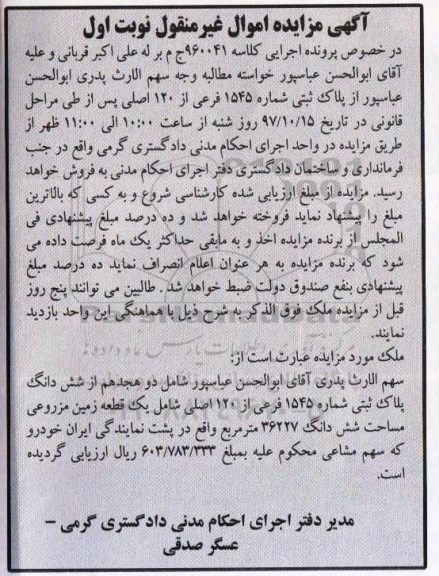 آگهی مزایده اموال غیرمنقول نوبت اول
در خصوص پرونده اجرایی کلاسه ۹۶۰۰۴۱ج م بر له علی اکبر قربانی و علیه
آقای ابوالحسن عباسپور خواسته مطالبه وجه سهم الارث پدری ابوالحسن
عباسپور از پلاک ثبتی شماره ۱۵۴۵ فرعی از ۱۲۰ اصلی پس از طی مراحل
قانونی در تاریخ ۹۷/۱۰/۱۵ روز شنبه از ساعت ۱۰:۰۰ الی ۱۱:۰۰ ظهر از
طریق مزایده در واحد اجرای احکام مدنی دادگستری گرمی واقع در جنب
فرمانداری و ساختمان دادگستری دفتر اجرای احکام مدنی به فروش خواهد
رسید. مزایده از مبلغ ارزیابی شده کارشناسی شروع و به کسی که بالاترین
مبلغ را پیشنهاد نماید فروخته خواهد شد و ده درصد مبلغ پیشنهادی فی
المجلس از برنده مزایده اخذ و به مابقی حداکثر یک ماه فرصت داده می
شود که برنده مزایده به هر عنوان اعلام انصراف نماید ده درصد مبلغ
پیشنهادی بنفع صندوق دولت ضبط خواهد شد . طالبین می توانند پنج روز
قبل از مزایده ملک فوق الذکر به شرح ذیل با هماهنگی این واحد بازدید
نمایند.
ملک مورد مزایده عبارت است از:
سهم الارث پدری آقای ابوالحسن عباسپور شامل دو هجدهم از شش دانگ
پلاک ثبتی شماره ۱۵۴۵ فرعی از ۱۲۰ اصلی شامل یک قطعه زمین مزروعی
مساحت شش دانگ ۳۶۲۲۷ مترمربع واقع در پشت نمایندگی ایران خودرو
که سهم مشاعی محکوم علیه بمبلغ ۶۰۳/۷۸۳/۳۳۳ ریال ارزیابی گردیده
است.
مدیر دفتر اجرای احکام مدنی دادگستری گرمی –
عسگر صدقی